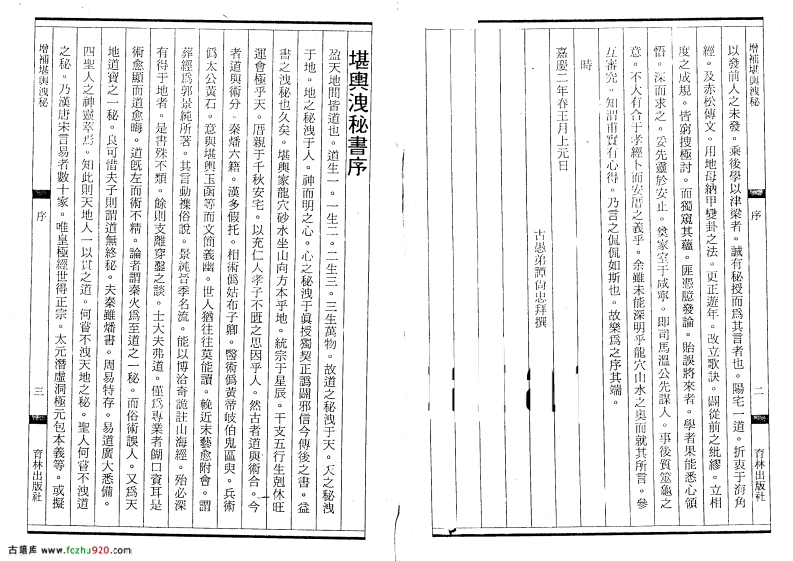 增補堪輿洩秘
序
二
育林出版社
以發前人之未發。乘後學以津梁者。誠有秘授而爲其言者也。陽宅一道。折衷于海角
經。及赤松傳文。用地母納甲變卦之法。更正遊年。改立歌訣。闢從前之紕繆。立相
度之成規。皆窮搜極討。而獨窺其蘊。匪憑臆發論。貽誤將來者。學者果能悉心領
悟。深而求之。妥先靈於安止。奠家室于咸寧。即司馬溫公先謀人。事後質筮龜之
意。不大有合于孝經卜而安厝之義乎。余雖未能深明乎龍穴山水之奧而就其所言。參
互審究。知謂甫實有心得。乃言之侃侃如斯也。故樂爲之序其端。
時
嘉慶二年春王月上元日
古愚弟譚尙忠拜撰
堪輿洩秘書序
盈天地間皆道也。道生一。一生二。二生三。三生萬物。故道之秘洩于天。天之秘洩
于地。地之秘洩于人。神而明之心。心之秘洩于眞授獨契正譌闢邪信今傳後之書。益
書之洩秘也久矣。堪輿家龍穴砂水坐山向方本乎地。統宗于星辰。干支五行生剋休旺
運會極乎天。厝親于千秋安宅。以充仁人孝子不匱之思因乎人。然古者道與術合。今
者道與術分。秦燔六籍。漢多假托。相術僞姑布子卿。醫術僞黃帝岐伯鬼區臾。兵術
僞太公黃石。意與堪輿玉函等而文簡義幽。世人猶往往莫能讀。輓近末藝愈附會。謂
葬經爲郭景純所著。其言動襍俗說。景純晉季名流。能以博洽奇詭註山海經。殆必深
有得于地者。是書殊不類。餘則支離穿鑿之談。士大夫弗道。僅爲專業者餬口資耳是
術愈顯而道愈晦。道旣左而術不精。論者謂秦火爲至道之一秘。而俗術誤人。又爲天
地道寶之一秘。良可惜夫子則謂道無終秘。夫秦雖燔書。周易特存。易道廣大悉備。
四聖人之神靈萃焉。知此則天地人一以貫之道。何嘗不洩天地之秘。聖人何嘗不洩道
之秘。乃漢唐宋言易者數十家。唯皇極經世得正宗。太元潛虛洞極元包本義等。或擬
增補堪輿洩秘
序
三
育林出版社
古籍库 www.fczhu920.com